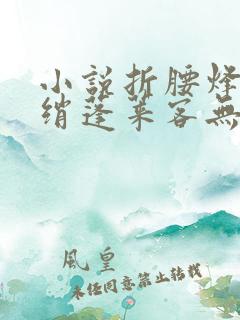 小說折腰烽
綃蓬萊客無
風皇
未经同意禁止转载